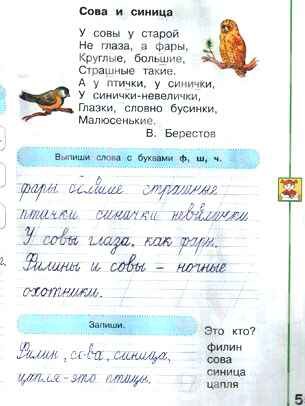 Сова и синица
У совы у старой
Не глаза, а фары,
Круглые, большие,
Страшные такие.
А у птички, у синички,
У синички-невелички,
Глазки, словно бусинки,
Малюсенькие.
В. Берестов
Выпиши слова с буквами ф, ш, ч.
фары большие страшные
птички синички невелички
У совы глаза, как фары.
Филины и совы – ночные
охотники.
Запиши.
Филин, сова, синица,
цапля-это птицы.
Это кто?
филин
сова
синица
цапля
5